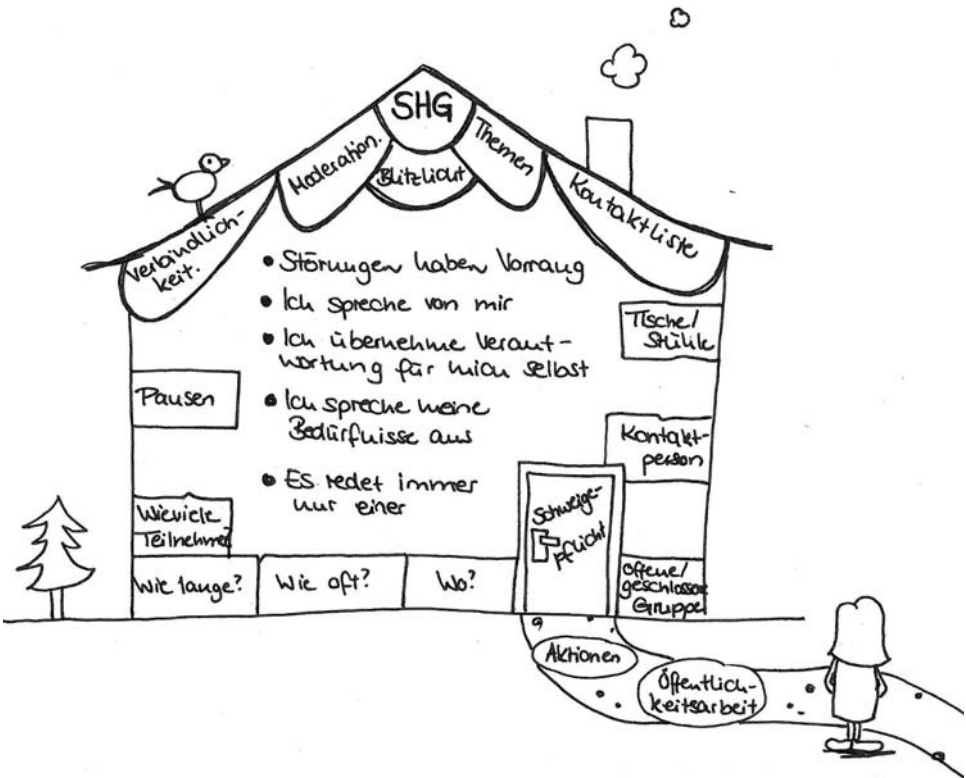 SHG
Moderation.
Blitzlicht
Themen
Verbindlich-
keit.
Kontaktliste
• Störungen haben Vorrang
• Ich spreche von mir
• Ich übernehme Verant-
wortung für mich selbst
• Ich spreche meine
Bedürfnisse aus
• Es redet immer
nur einer
Tische/
Stühle
Pausen
Kontakt-
person
Wieviele
Teilnehmer
Schweige-
pflicht
Wie lange?
Wie oft?
Wo?
Offene/
geschlossene
Gruppe
Aktionen
Öffentlich-
keitsarbeit